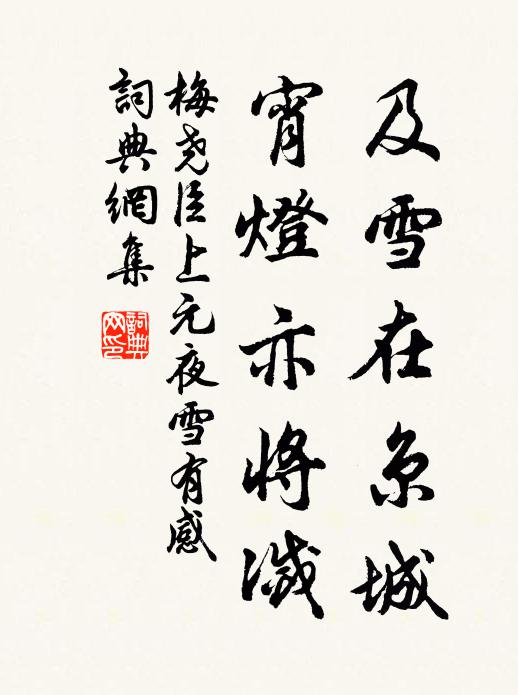 及雪在京城
宵燈亦將滅
梅堯臣上元夜雪有感
詞典網集
詞典网印